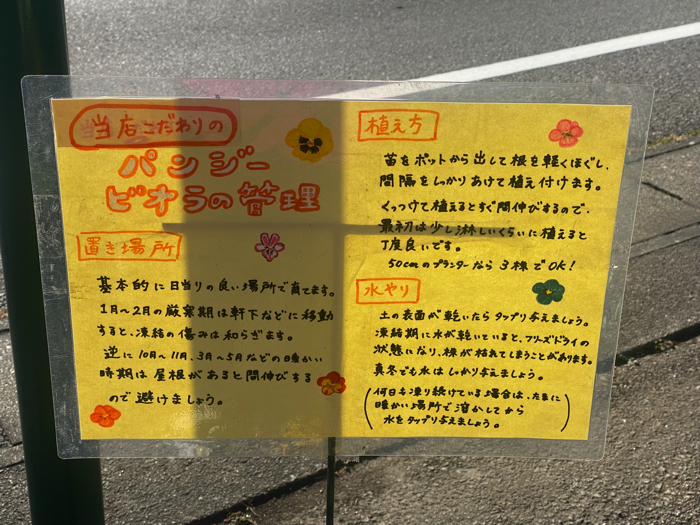 当店こだわりの
パンジー
ビオラの管理
置き場所
基本的に日当りの良い場所で育てます。
1月〜2月の厳寒期は軒下などに移動
すると、凍結の傷みは和らぎます。
逆に10月〜11月、3月〜5月などの暖かい
時期は屋根があると間伸びする
ので避けましょう。
植え方
苗をポットから出して根を軽くほぐし、
間隔をしっかりあけて植え付けます。
くっつけて植えるとすぐ間伸びするので、
最初は少し淋しいくらいに植えると
丁度良いです。
50cmのプランターなら3株でOK!
水やり
土の表面が乾いたらタップリ与えましょう。
凍結期に水が乾いていると、フリーズドライの
状態になり、株が枯れてしまうことがあります。
真冬でも水はしっかり与えましょう。
(何日も凍り続けている場合は、たまに
暖かい場所で溶かしてから
水をタップリ与えましょう。)